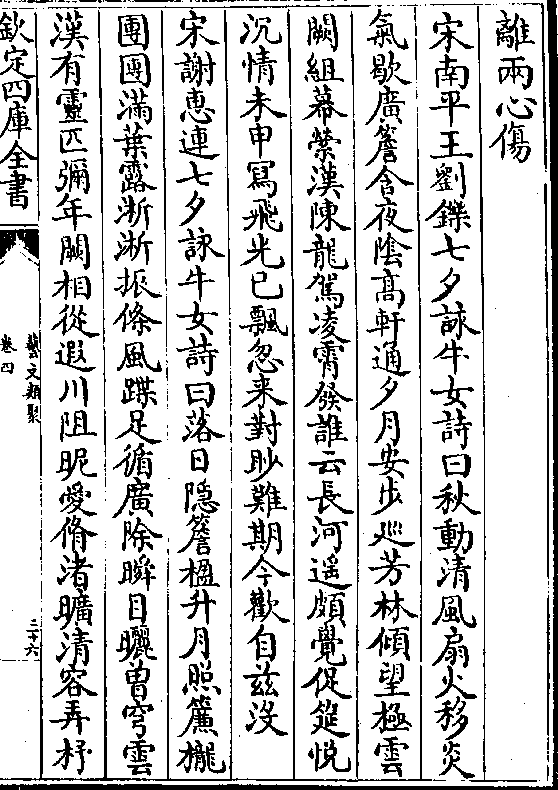 離兩心傷
宋南平王劉鑠七夕詠牛女詩曰秋動清風扇火移炎
氣歇廣簷含夜陰髙軒通夕月安歩巡芳林傾望極雲
闕組幕縈漢陳龍駕凌霄發誰云長河遥頗覺促筵悦
沉情未申寫飛光已飄忽来對眇難期今歡自兹沒
宋謝惠連七夕詠牛女詩曰落日隠簷楹升月照簾櫳
團團滿葉露淅淅振條風蹀足循廣除瞬目曬曽穹雲
漢有靈匹彌年闕相從遐川阻昵愛脩渚曠清容弄杼
欽定四庫全書
藝文類聚
卷四
二十六